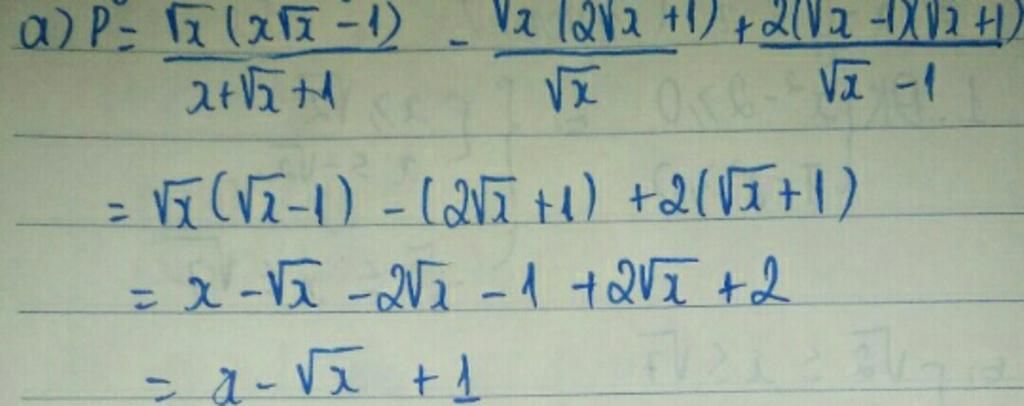 a) P = √x(x√x - 1)/(x + √x + 1) - √x(2√x + 1)/√x + 2(√x - 1)(√x + 1)/(√x - 1)
= √x(√x - 1) - (2√x + 1) + 2(√x + 1)
= x - √x - 2√x - 1 + 2√x + 2
= x - √x + 1